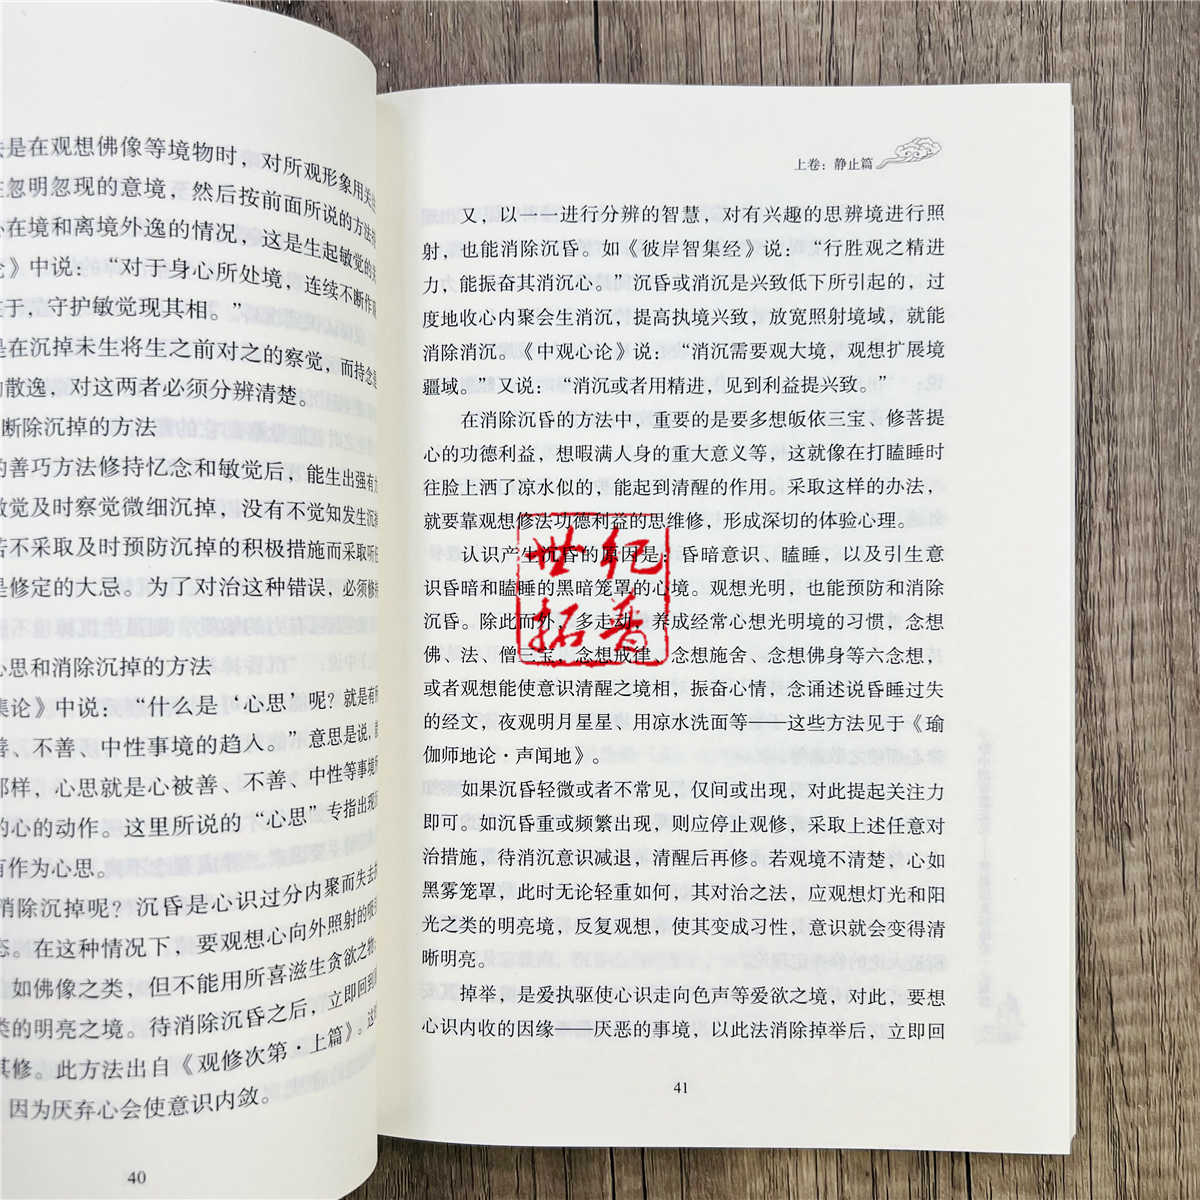 是在观想佛像等境物时，对所观形象用关
忽明忽现的意境，然后按前面所说的方法
在境和离境外逸的情况，这是生起敏觉的
论》中说：“对于身心所处境，连续不断作
于，守护敏觉现其相。”
是在沉掉未生将生之前对之的察觉，而持念
散逸，对这两者必须分辨清楚。
断除沉掉的方法
的善巧方法修持忆念和敏觉后，能生出强有
敏觉及时察觉微细沉掉，没有不觉知发生沉
若不采取及时预防沉掉的积极措施而采取听
是修定的大忌。为了对治这种错误，必须修
心思和消除沉掉的方法
集论》中说：“什么是‘心思’呢？就是有
善、不善、中性事境的趋入。”意思是说，
那样，心思就是心被善、不善、中性等事境
的心的动作。这里所说的“心思”专指出现
有作为心思。
消除沉掉呢？沉昏是心识过分内聚而失去
态。在这种情况下，要观想心向外照射的
如佛像之类，但不能用所喜滋生贪欲之物
类的明亮之境。待消除沉昏之后，立即回到
其修。此方法出自《观修次第·上篇》。
因为厌弃心会使意识内敛。
40
上卷：静止篇
又，以一一进行分辨的智慧，对有兴趣的思辨境进行照
射，也能消除沉昏。如《彼岸智集经》说：“行胜观之精进
力，能振奋其消沉心。”沉昏或消沉是兴致低下所引起的，过
度地收心内聚会生消沉，提高执境兴致，放宽照射境域，就能
消除消沉。《中观心论》说：“消沉需要观大境，观想扩展境
疆域。”又说：“消沉或者用精进，见到利益提兴致。”
在消除沉昏的方法中，重要的是要多想皈依三宝、修菩提
心的功德利益，想暇满人身的重大意义等，这就像在打瞌睡时
往脸上洒了凉水似的，能起到清醒的作用。采取这样的办法，
就要靠观想修法功德利益的思维修，形成深切的体验心理。
认识产生沉昏的原因是：昏暗意识、瞌睡，以及引生意
识昏暗和瞌睡的黑暗笼罩的心境。观想光明，也能预防和消除
沉昏。除此而外，多走动，养成经常心想光明境的习惯，念想
佛、法、僧三宝，念想戒律、念想施舍、念想佛身等六念想，
或者观想能使意识清醒之境相，振奋心情，念诵述说昏睡过失
的经文，夜观明月星星、用凉水洗面等——这些方法见于《瑜
伽师地论·声闻地》。
如果沉昏轻微或者不常见，仅间或出现，对此提起关注力
即可。如沉昏重或频繁出现，则应停止观修，采取上述任意对
治措施，待消沉意识减退，清醒后再修。若观境不清楚，心如
黑雾笼罩，此时无论轻重如何，其对治之法，应观想灯光和阳
光之类的明亮境，反复观想，使其变成习性，意识就会变得清
晰明亮。
掉举，是爱执驱使心识走向色声等爱欲之境，对此，要想
心识内收的因缘——厌恶的事境，以此法消除掉举后，立即回
41
世纪
拓普